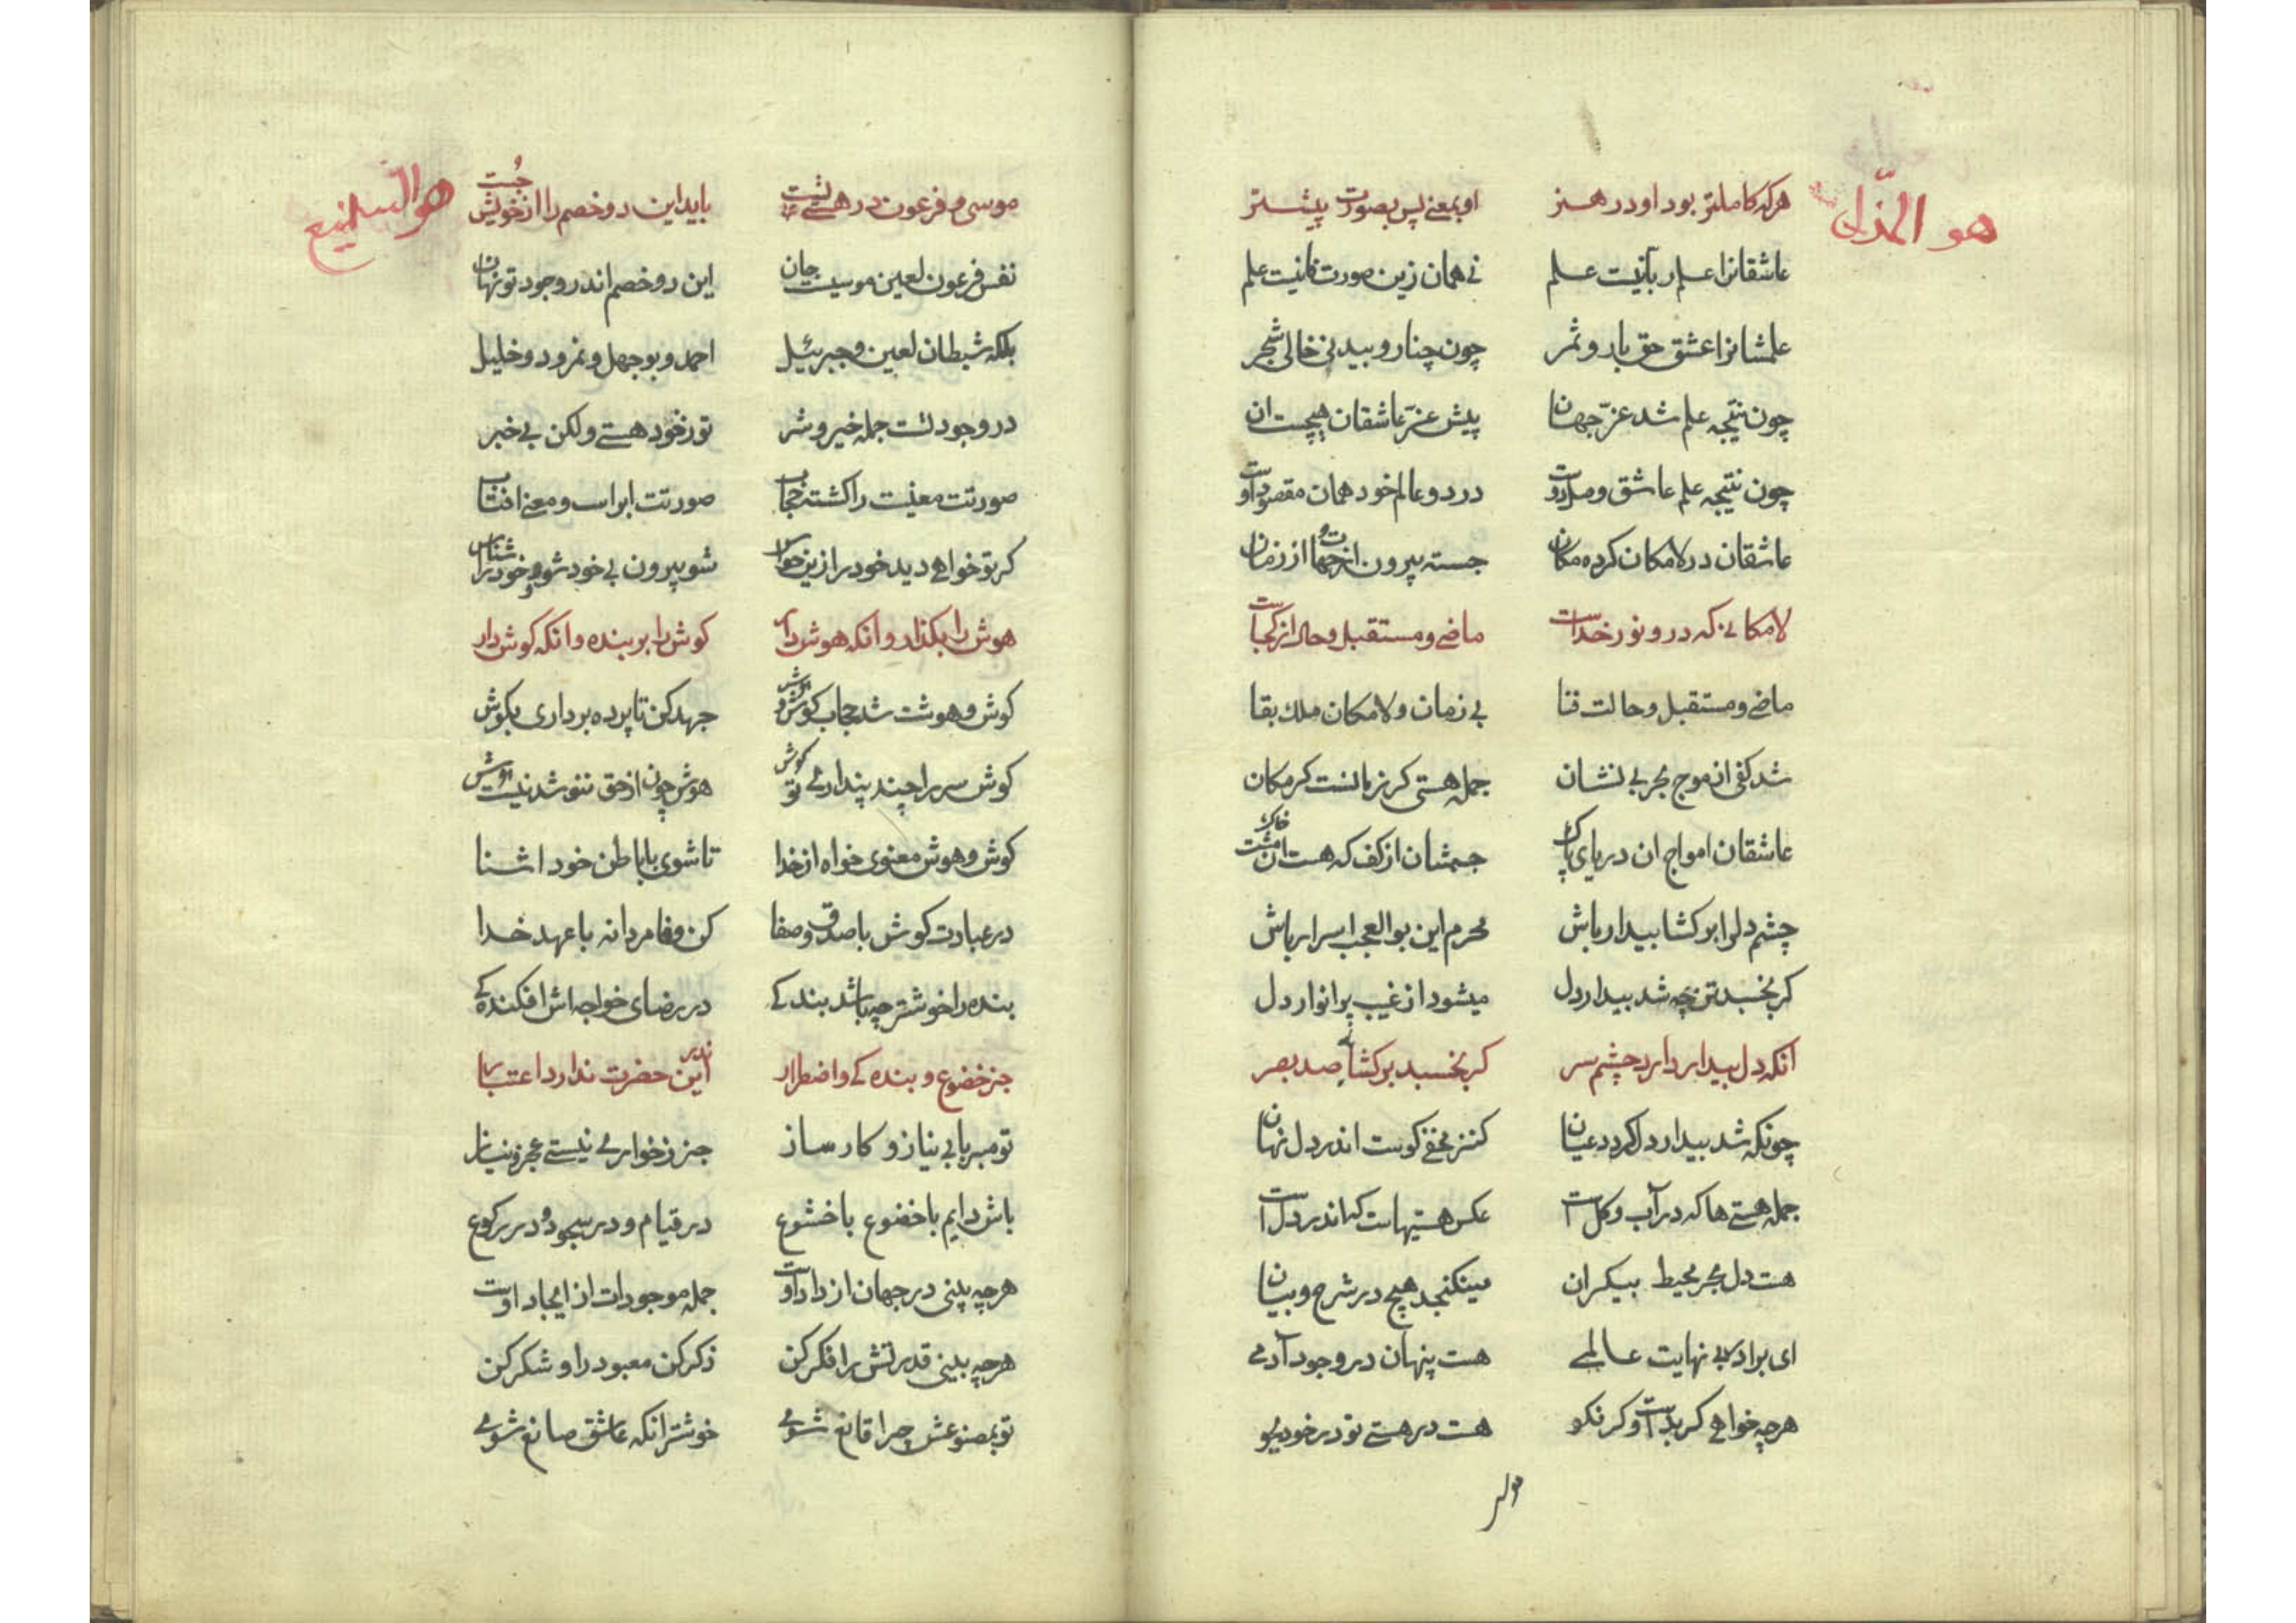 هو المذل
هرکه کاملتر بود او در هنر او بمعنی پس بصورت پیشتر
عاشقانرا علم ربانیست علم نی همان زین صورت فانیست علم
علمشانرا عشق حق بار و ثمر چون چنار و بید نی خالی شجر
چون نتیجه علم شد عز جهان پیش عز عاشقان هیچست ان
چون نتیجه علم عاشق در دو عالم خود همان مقصود اوست
عاشقان در لامکان کرده مکان جسته بیرون از جهات و از زمان
لامکانی که درو نور خداست ماضی و مستقبل و حال از کجاست
ماضی و مستقبل و حالت فنا بی زمان و لامکان ملک بقا
شد کفی از موج بحر بی نشان جمله هستی کر زمانست کر مکان
عاشقان امواج ان دریای پاک جسمشان از کف که هست ان مشت خاک
چشم دلرا بر کشا بیدار باش محرم این بوالعجب اسرار باش
کر بخسبد تن چه شد بیدار دل میشود از غیب پر انوار دل
انکه دل بیدار دارد چشم سر کر بخسبد بر کشاید صد بصر
چونکه شد بیدار دل کردد عیان کنز مخفی کوست اندر دل نهان
جمله هستی ها که در آب و کل است عکس هستیهاست که اندر دل است
هست دل بحر محیط بیکران مینکنجد هیچ در شرح و بیان
ای برادر بی نهایت عالمی هست پنهان در وجود آدمی
هرچه خواهی کر بد است و کر نکو هست در هستی تو در خود بجو
هو السمیع
موسی و فرعون در هستی تست باید این دو خصم را از خویش جست
نفس فرعون لعین موسیست جان این دو خصم اندر وجود تو نهان
بلکه شیطان لعین و جبرئیل احمد و بوجهل و نمرود و خلیل
در وجود تست جمله خیر و شر تو ز خود هستی ولکن بی خبر
صورتت معنیت را کشته حجاب صورتت ابر است و معنی افتاب
کر تو خواهی دید خود را زین حواس شو بیرون بی خود شو و خود را شناس
هوش را بکذار وانکه هوش دار کوش را بر بند وانکه کوش دار
کوش و هوشت شد حجاب کوش و هوش جهد کن تا پرده برداری بکوش
کوش سر را چند پنداری تو کوش هوش چون از حق ننوشد نیست هوش
کوش و هوش معنوی خواه از خدا تا شوی با باطن خود اشنا
در عبادت کوش با صدق و صفا کن وفا مردانه با عهد خدا
بنده را خوشتر چه باشد بندکی در رضای خواجه اش افکندکی
جز خضوع و بنده کی و اضطرار اندر این حضرت ندارد اعتبار
تو مبر با بی نیاز و کارساز جز ز خواری نیستی عجز و نیاز
باش دایم با خضوع با خشوع در قیام و در سجود و در رکوع
هرچه بینی در جهان از داد اوست جمله موجودات از ایجاد اوست
هرچه بینی قدرتش را فکر کن ذکر کن معبود را و شکر کن
تو بمصنوعش چرا قانع شوی خوشتر انکه عاشق صانع شوی